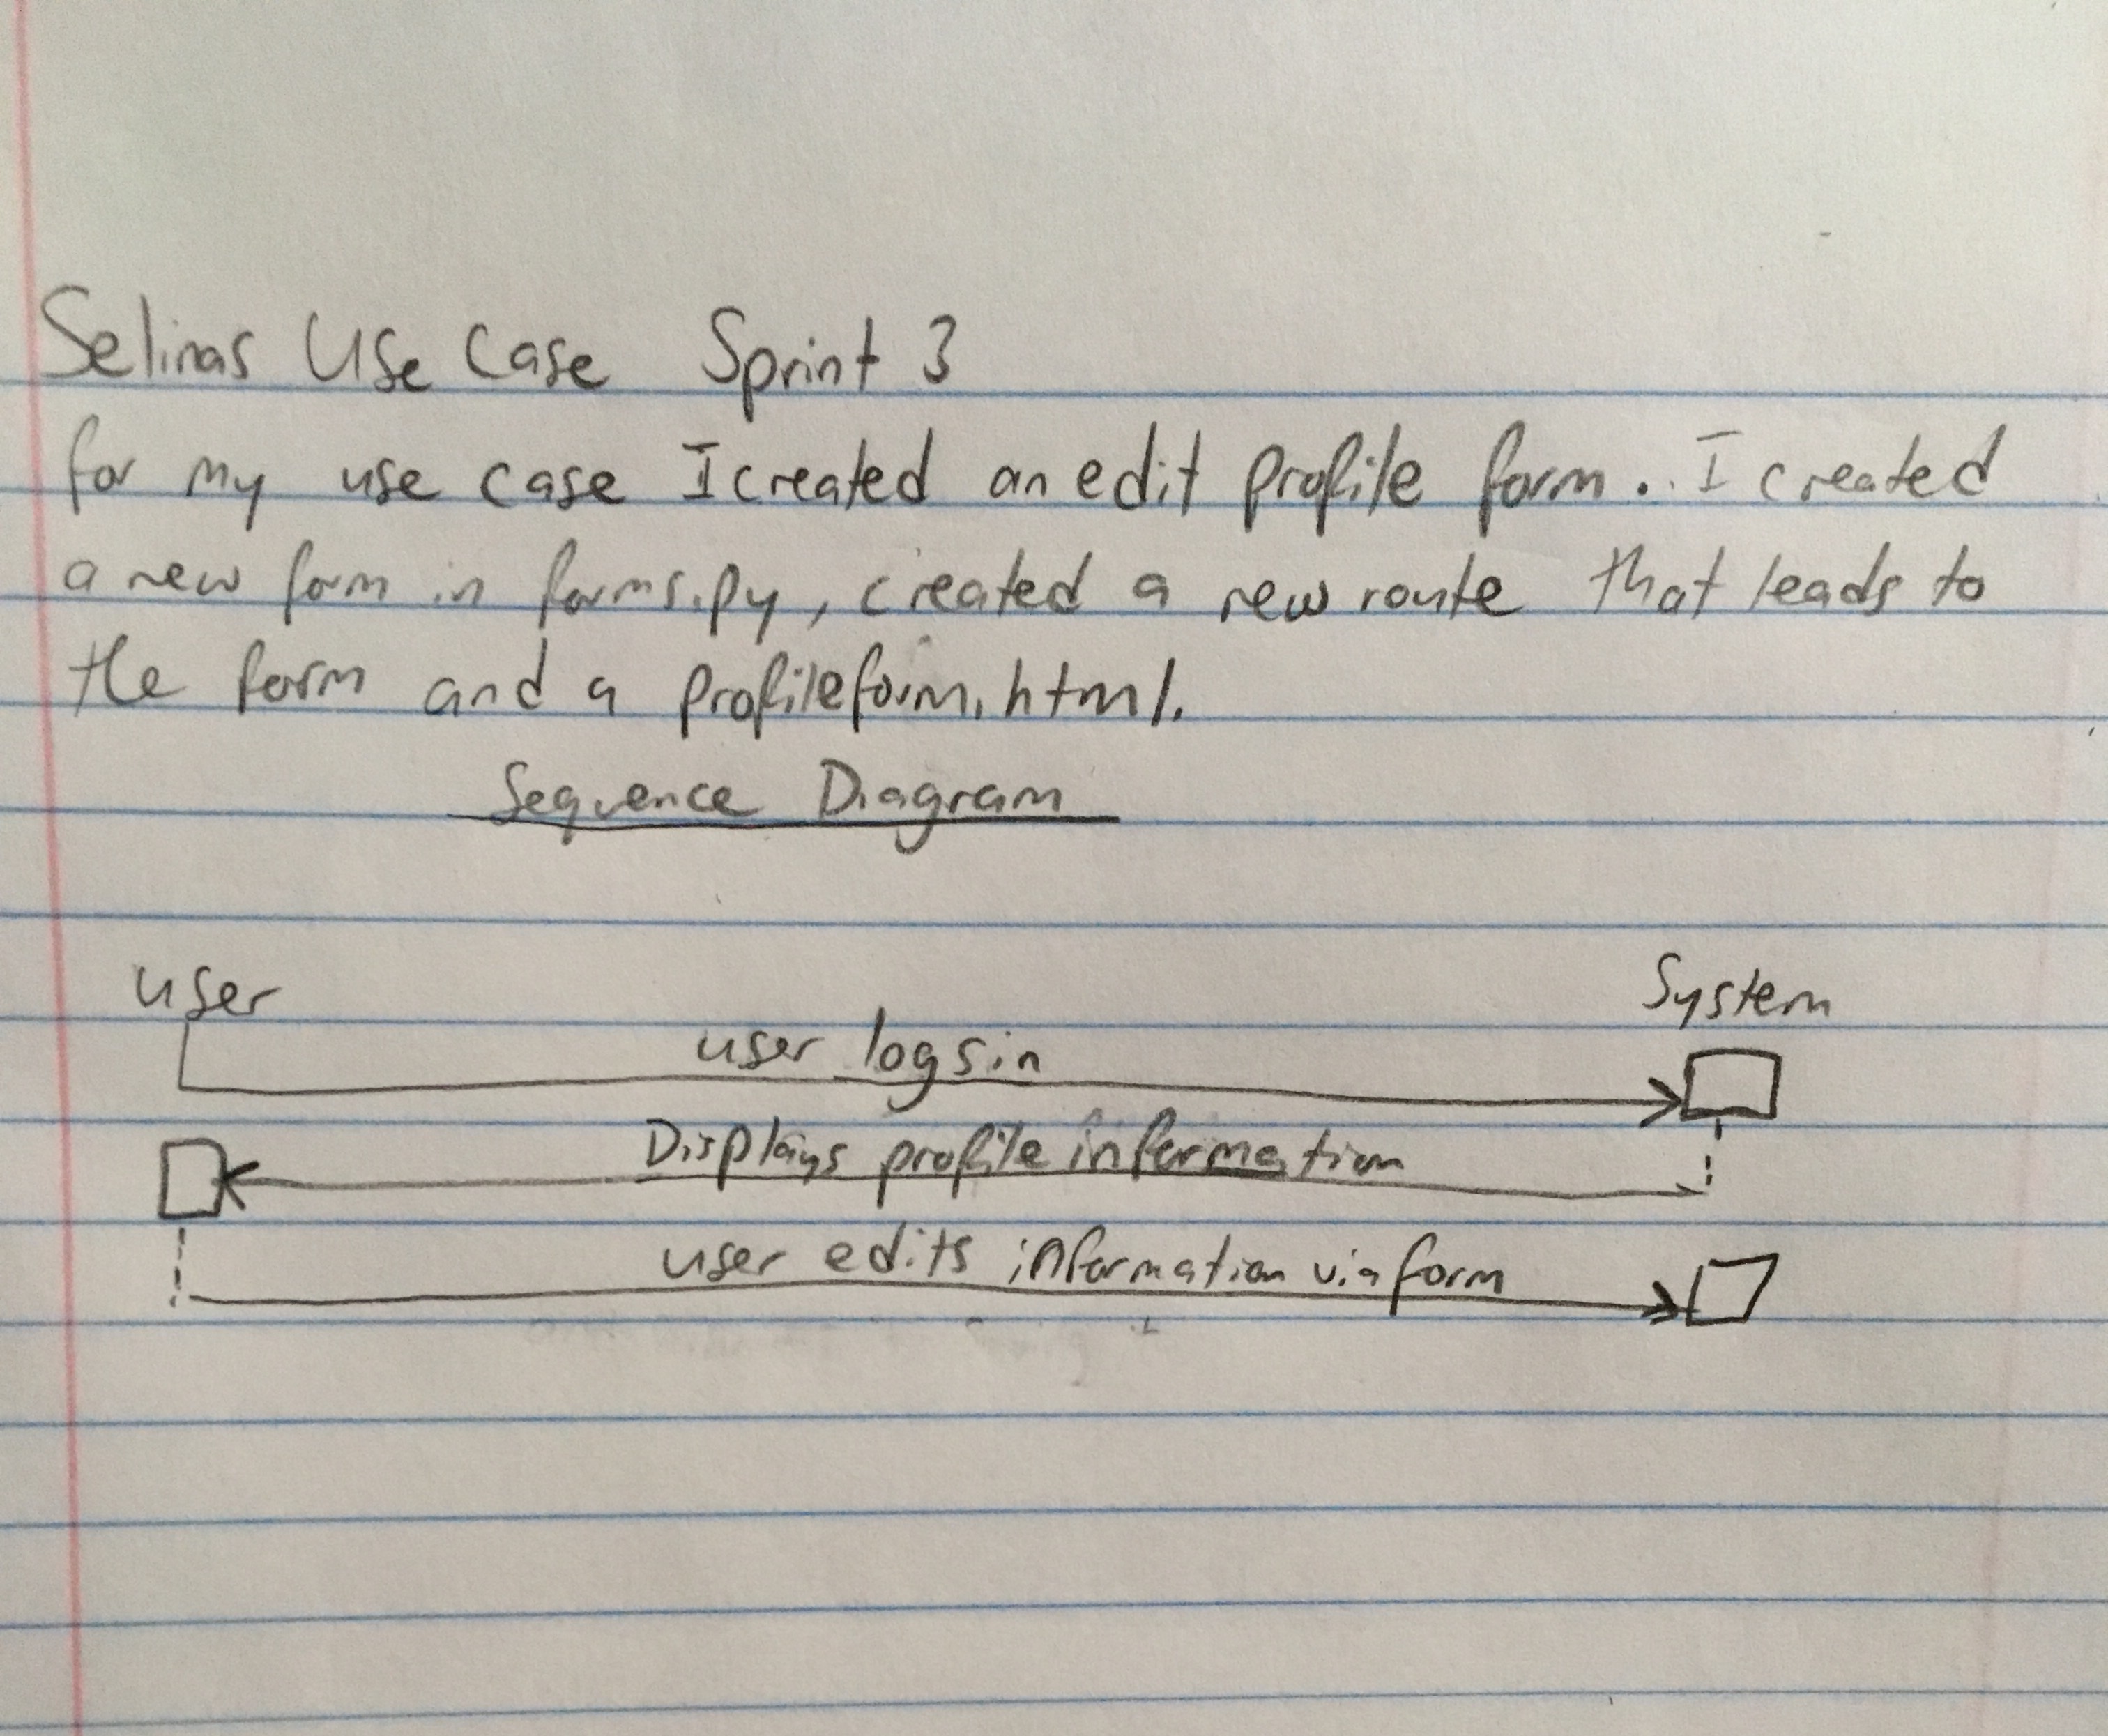 Selinas Use Case Sprint 3
for my use case I created an edit profile form. I created
a new form in forms.py, created a new route that leads to
the form and a profileform.html.
Sequence Diagram
user
System
user logs in
Displays profile information
user edits information via form